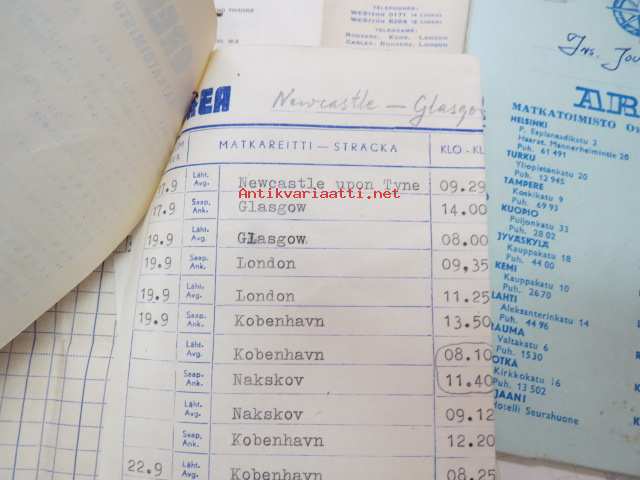 TELEPHONES:
WEBSTER 0171
WEBSTER 8208
TELEGRAMS:
RODGERS, KUHR, LONDON
CABLES: RODGERS, LONDON
REA Newcastle — Glasgow
MATKAREITTI — STRÄCKA KLO - KL
17.9 Läht. Avg. Newcastle upon Tyne 09.29
17.9 Saap. Ank. Glasgow 14.00
19.9 Läht. Avg. Glasgow 08.00
19.9 Saap. Ank. London 09,35
19.9 Läht. Avg. London 11.25
19.9 Saap. Ank. Kobenhavn 13.50
Läht. Avg. Kobenhavn 08.10
Saap. Ank. Nakskov 11.40
Läht. Avg. Nakskov 09.12
Saap. Ank. Kobenhavn 12.20
22.9 Läht. Avg. Kobenhavn 08.25
Antikvariaatti.net
Ins. Jou
AR
MATKATOIMISTO O
HELSINKI
P. Esplanaadikatu 2
Haarat. Mannerheimintie
Puh. 61 491
TURKU
Yliopistonkatu
Puh. 12 945
TAMPERE
Koskikatu 9
Puh. 69 93
KUOPIO
Puijonkatu 33
Puh. 28 02
JYVÄSKYLÄ
Kauppakatu 18
Puh. 44 00
KEMI
Kauppakatu 16
Puh. 26 70
LAHTI
Aleksanterinkatu 14
Puh. 44 96
RAUMA
Valtakatu 6
Puh. 1530
OTKA
Kirkkokatu 16
Puh. 13 502
JAANI
Hotelli Seurahuone